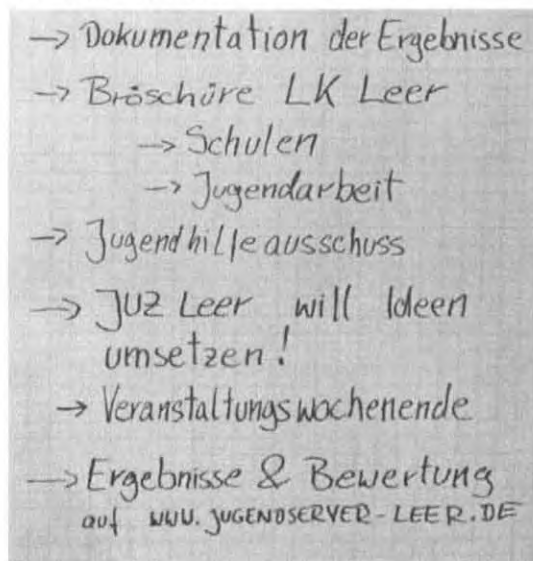 → Dokumentation der Ergebnisse
→ Bröschüre LK Leer
→ Schulen
→ Jugendarbeit
→ Jugendhilfeausschuss
→ JUZ Leer will Ideen
umsetzen!
→ Veranstaltungswochenende
→ Ergebnisse & Bewertung
auf WWW.JUGENDSERVER-LEER.DE